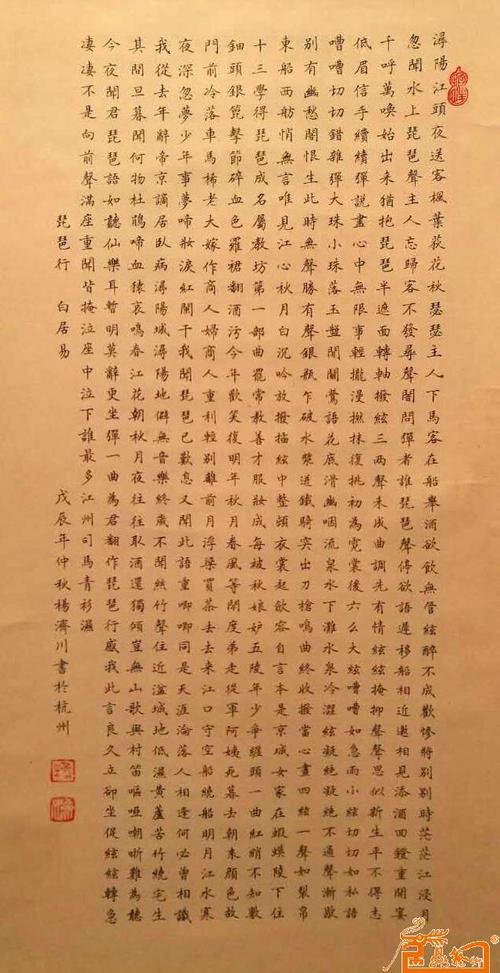 潯陽江頭夜送客楓葉荻花秋瑟瑟主人下馬客在船舉酒欲飲無管絃醉不成歡慘將別別時茫茫江浸月
忽聞水上琵琶聲主人忘歸客不發尋聲闇問彈者誰琵琶聲停欲語遲移船相近邀相見添酒回鐙重開宴
千呼萬喚始出來猶抱琵琶半遮面轉軸撥絃三兩聲未成曲調先有情絃絃掩抑聲聲思似新生平不得志
低眉信手續續彈說盡心中無限事輕攏漫撚抹復挑初為霓裳後六么大絃嘈嘈如急雨小絃切切如私語
嘈嘈切切錯雜彈大珠小珠落玉盤間關鶯語花底滑幽咽流泉水下灘水泉冷澀絃凝絕凝絕不通聲漸歇
別有幽愁闇恨生此時無聲勝有聲銀瓶乍破水漿迸鐵騎突出刀槍鳴曲終收撥當心畫四絃一聲如裂帛
東船西舫悄無言唯見江心秋月白沉吟放撥插絃中整頓衣裳起斂容自言本是京城女家在蝦蟆陵下住
十三學得琵琶成名屬教坊第一部曲罷常教善才服妝成每被秋娘妒五陵年少爭纏頭一曲紅綃不知數
鈿頭銀篦擊節碎血色羅裙翻酒污今年歡笑復明年秋月春風等閒度弟走從軍阿姨死暮去朝來顏色故
門前冷落車馬稀老大嫁作商人婦商人重利輕別離前月浮梁買茶去去來江口守空船繞船明月江水寒
夜深忽夢少年事夢啼妝淚紅闌干我聞琵琶已歎息又聞此語重唧唧同是天涯淪落人相逢何必曾相識
我從去年辭帝京謫居臥病潯陽城潯陽地僻無音樂終歲不聞絲竹聲住近湓城地低濕黃蘆苦竹繞宅生
其間旦暮聞何物杜鵑啼血猿哀鳴春江花朝秋月夜往往取酒還獨傾豈無山歌與村笛嘔啞嘲哳難為聽
今夜聞君琵琶語如聽仙樂耳暫明莫辭更坐彈一曲為君翻作琵琶行感我此言良久立卻坐促絃絃轉急
淒淒不是向前聲滿座重聞皆掩泣座中泣下誰最多江州司馬青衫濕
琵琶行 白居易 戊辰年仲秋楊濟川書於杭州